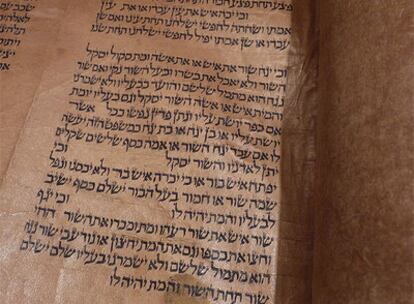 פצע תחת פצע חבורה תחת חבורה
וכי יכה איש את עין עבדו או את עין
אמתו ושחתה לחפשי ישלחנו תחת עינו ואם שן
עבדו או שן אמתו יפיל לחפשי ישלחנו תחת שנו
וכי יגח שור את איש או את אשה ומת סקול יסקל
השור ולא יאכל את בשרו ובעל השור נקי ואם שור
נגח הוא מתמל שלשם והועד בבעליו ולא ישמרנו
והמית איש או אשה השור יסקל וגם בעליו יומת
אם כפר יושת עליו ונתן פדין נפשו ככל אשר
יושת עליו או בן יגח או בת יגח כמשפט הזה יעשה
לו אם עבד יגח השור או אמה כסף שלשים שקלים
יתן לאדניו והשור יסקל וכי
יפתח איש בור או כי יכרה איש בר ולא יכסנו ונפל
שמה שור או חמור בעל הבור ישלם כסף ישיב
לבעליו והמת יהיה לו וכי יגף
שור איש את שור רעהו ומת ומכרו את השור החי
וחצו את כספו וגם את המת יחצון או נודע כי שור נגח
הוא מתמול שלשם ולא ישמרנו בעליו שלם ישלם
שור תחת השור והמת יהיה לו